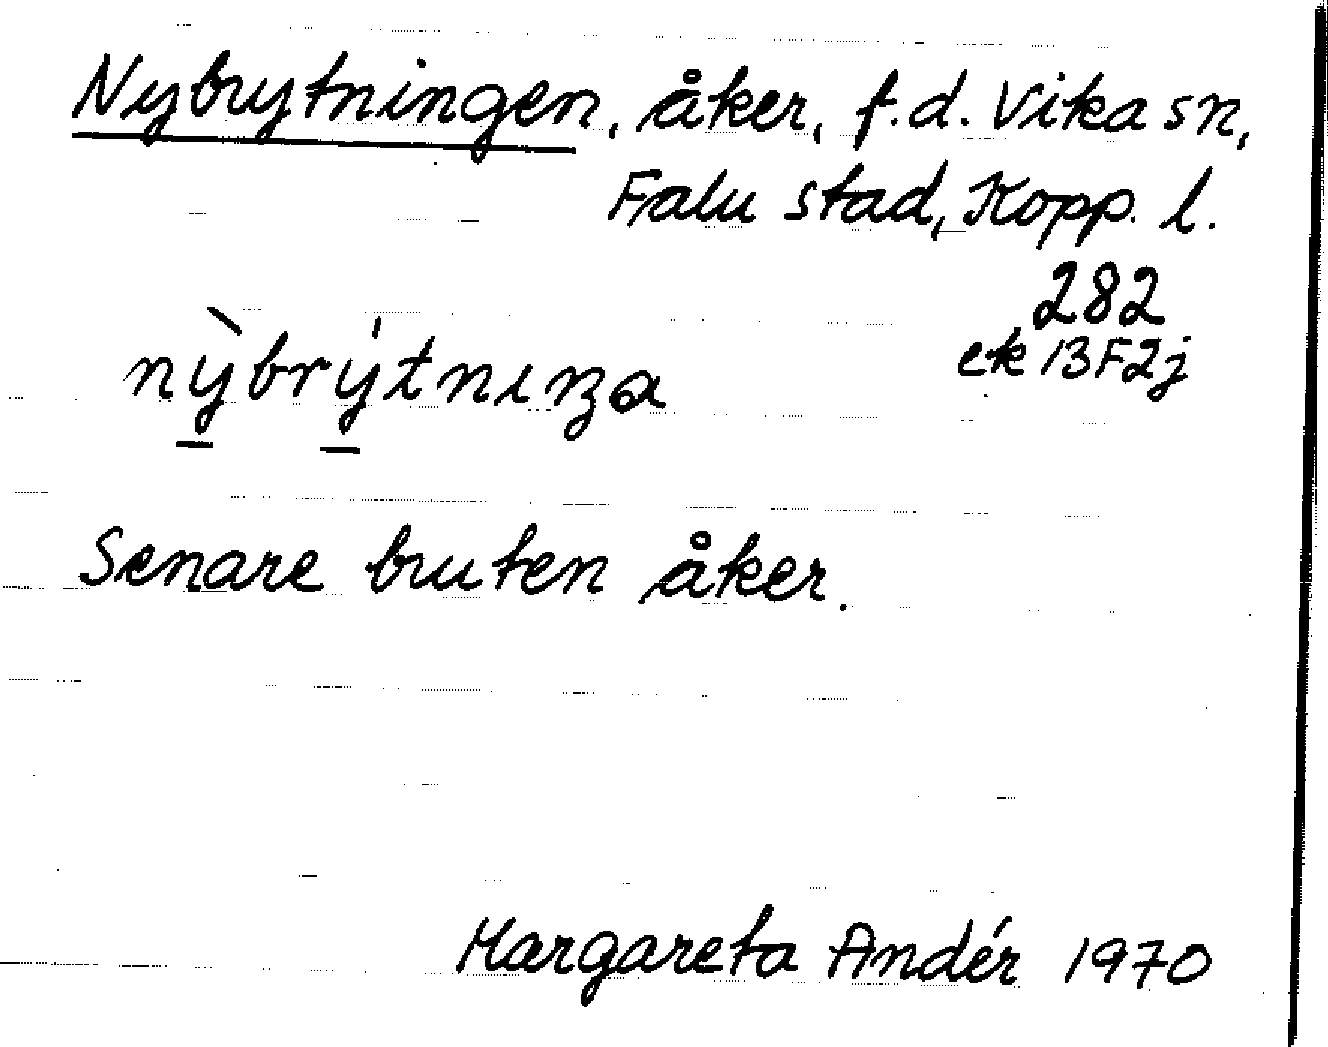 Nybrytningen, åker, f.d. Vika sn,
Falu stad, Kopp. l.
282
ek 13F2j
nỳbrýtnıŋa
Senare bruten åker.
Margareta Andér 1970